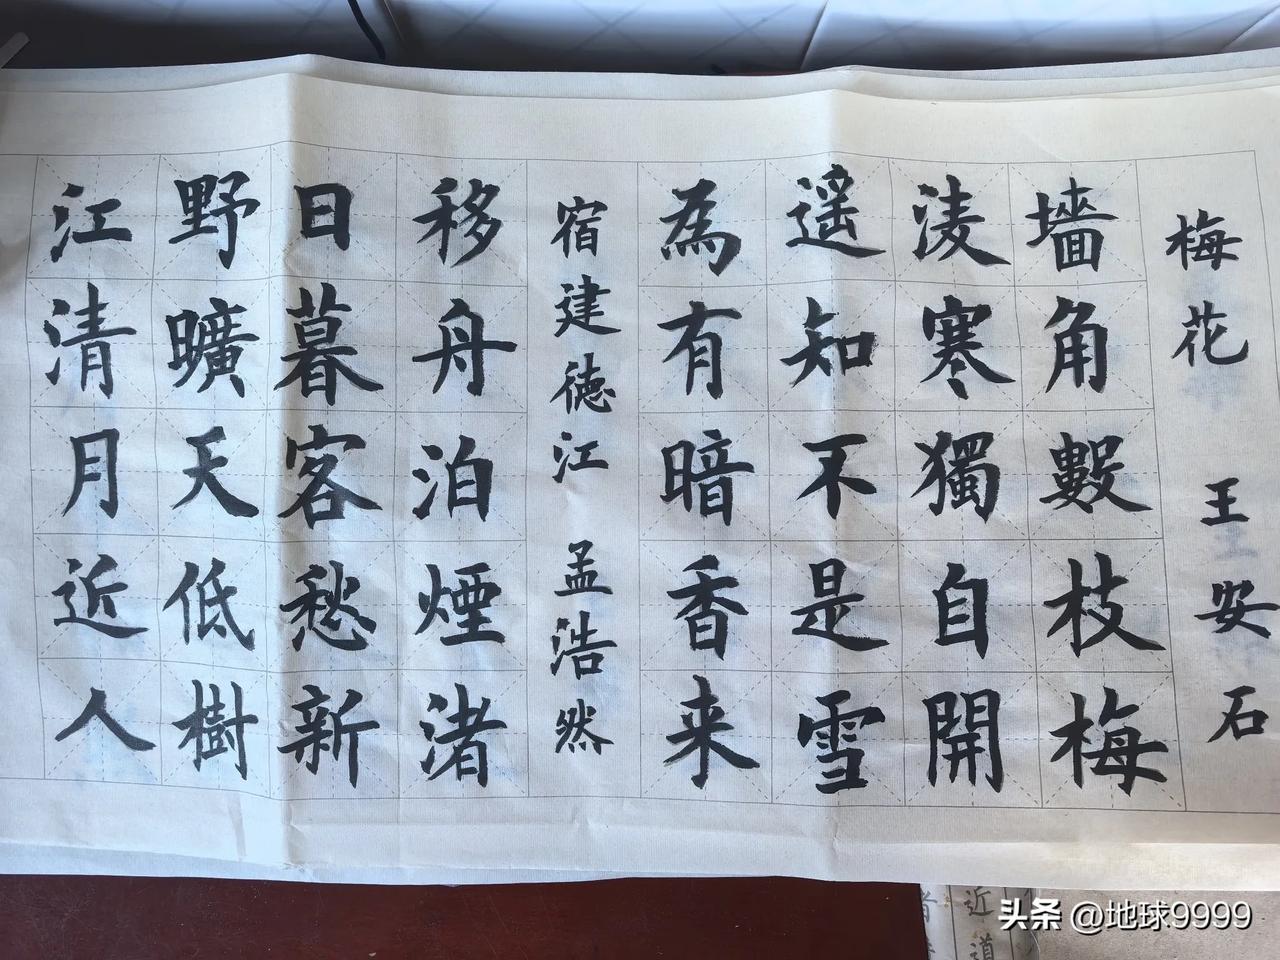 梅花 王安石
墻角數枝梅
淩寒獨自開
遥知不是雪
為有暗香来
宿建德江 孟浩然
移舟泊煙渚
日暮客愁新
野曠天低樹
江清月近人
近
道
头条 @地球9999